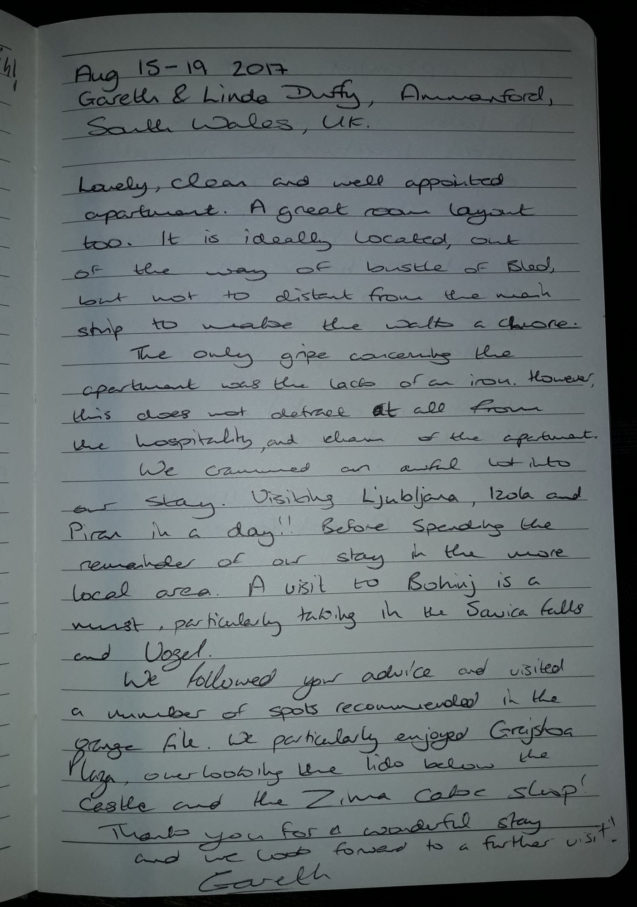 Aug 15-19 2017
Gareth & Linda Duffy, Ammanford,
South Wales, UK.
Lovely, clean and well appointed
apartment. A great room layout
too. It is ideally located, out
of the way of bustle of Bled,
but not to distant from the main
strip to make the walk a chore.
The only gripe concerning the
apartment was the lack of an iron. However,
this does not detract at all from
the hospitality, and charm of the apartment.
We crammed an awful lot into
our stay. Visiting Ljubljana, Izola and
Piran in a day!! Before spending the
remainder of our stay in the more
local area. A visit to Bohinj is a
must, particularly taking in the Savica falls
and Vogel.
We followed your advice and visited
a number of spots recommended in the
orange file. We particularly enjoyed Grajska
Plaza, overlooking the lido below the
Castle and the Zima cake shop!
Thank you for a wonderful stay
and we look forward to a further visit!
Gareth